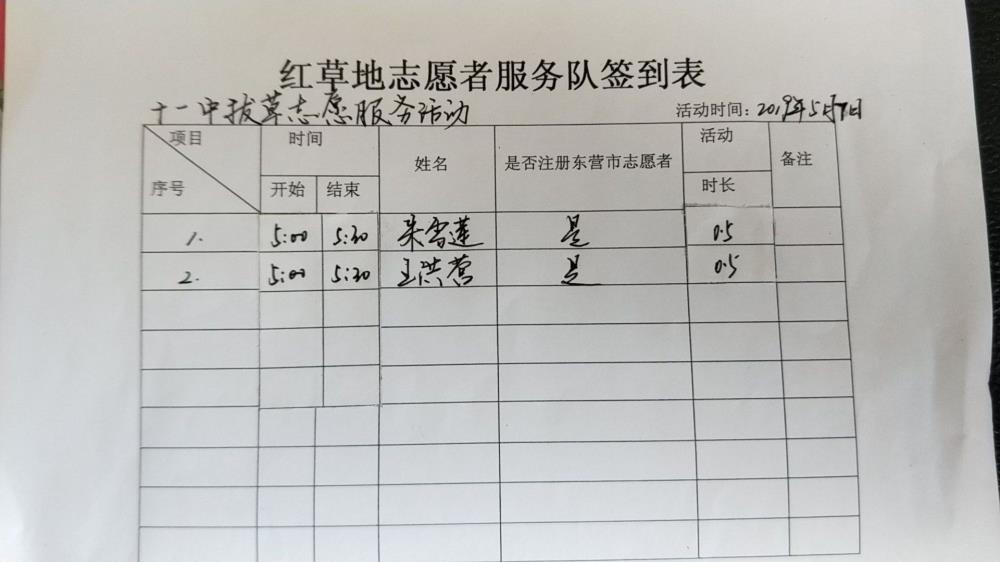 红草地志愿者服务队签到表
十一中拔草志愿服务活动 活动时间：2019年5月7日
项目 时间 姓名 是否注册东营市志愿者 活动 备注
序号 开始 结束 时长
1. 5:00 5:30 朱雪莲 是 0.5
2. 5:00 5:30 王洪营 是 0.5